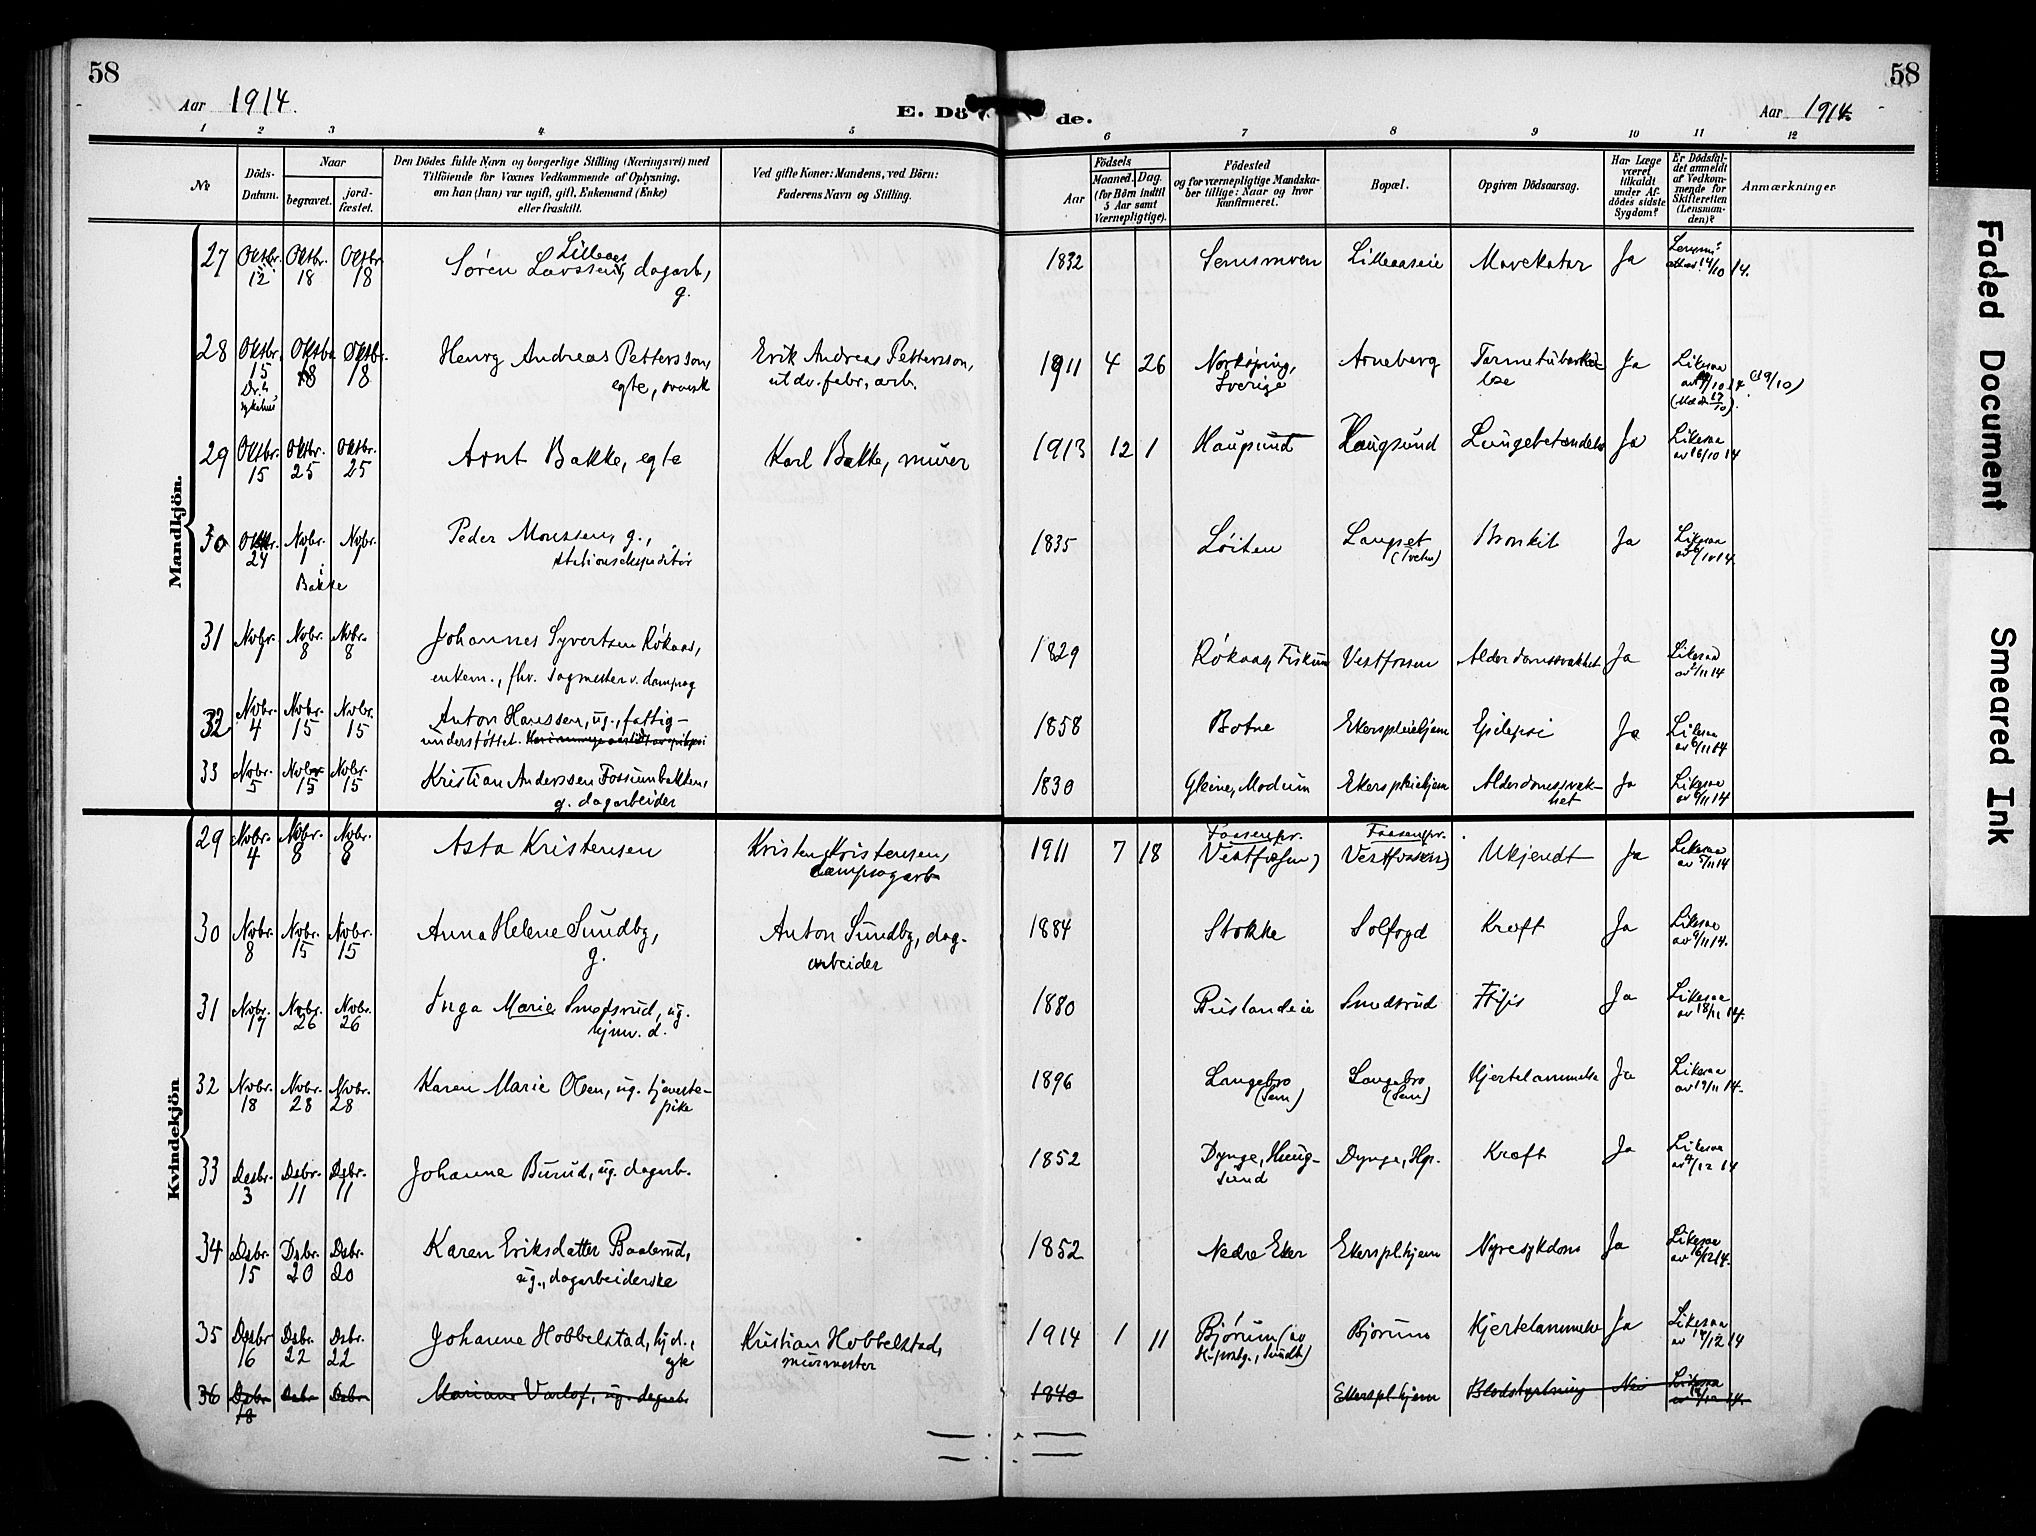 58
58
Aar 1914.
E. Dö de.
Aar 1914.
1 2 3 4 5 6 7 8 9 10 11 12
No
Döds-
Datum.
Naar
begravet.
jord-
fæstet.
Den Dödes fulde Navn og borgerlige Stilling (Næringsvei) med
Tilföiende for Voxnes Vedkommende af Oplysning,
om han (hun) var ugift, gift, Enkemand (Enke)
eller fraskilt.
Ved gifte Koner: Mandens, ved Börn:
Faderens Navn og Stilling.
Födsels
Aar
Maaned. Dag.
(for Börn indtil
5 Aar samt
Værnepligtige).
Födested
og for værnepligtige Mandska-
ber tillige: Naar og hvor
konfirmeret.
Bopæl.
Opgiven Dödsaarsag.
Har Læge
været
tilkaldt
under Af-
dödes sidste
Sygdom?
Er Dödsfal-
det anmeldt
af Vedkom-
mende for
Skifteretten
(Lensman-
den)?
Anmærkninger.
Mandkjön.
27 Oktbr. 12 Oktbr. 18 Oktbr. 18 Søren Larssen Lilleaas, dagarb., g. 1832 Semsmoen Lilleaaseie Mavekatar Ja 14/10 14.
28 Oktbr. 15 Oktbr. 18 Oktbr. 18 Henry Andreas Pettersson, egte, svensk Erik Andreas Pettersson, utdv. fabr. arb. 1911 4 26 Norköping, Sverige Arneberg Ja Likesaa (19/10)
29 Oktbr. 15 Oktbr. 25 Oktbr. 25 Arnt Bakke, egte Karl Bakke, murer 1913 12 1 Haugsund Haugsund Lungebetændelse Ja Likesaa av 16/10 14
30 Oktbr. 24 Novbr. 1 Novbr. 1 Bakke Peder Monssen, g., stationsekspeditør 1835 Løiten Langset Bronkit Ja Likesaa
31 Novbr. 1 Novbr. 8 Novbr. 8 Johannes Syvertsen Røkaas, enkem., fhv. sagmester v. dampsag 1829 Røkaas, Fiskum Vestfossen Alderdomssvakhet Ja Likesaa av 2/11 14
32 Novbr. 4 Novbr. 15 Novbr. 15 Anton Hanssen, ug., fattig-
understøttet. 1858 Botne Ekerspleiehjem Epilepsi Ja Likesaa av 6/11 14
33 Novbr. 5 Novbr. 15 Novbr. 15 Kristian Anderssen Fossumbakken, g. dagarbeider 1830 Gleine, Modum Ekerspleiehjem Alderdomssvak-
het Ja Likesaa av 6/11 14
Kvindekjön
29 Novbr. 4 Novbr. 8 Novbr. 8 Asta Kristensen Kristen Kristensen, dampsagarb. 1911 7 18 Vestfossen Vestfossen Ukjendt Ja Likesaa av 5/11 14
30 Novbr. 8 Novbr. 15 Novbr. 15 Anna Helene Sundby, g. Anton Sundby, dag-
arbeider 1884 Stokke Solfogd Kreft Ja Likesaa av 9/11 14.
31 Novbr. 17 Novbr. 26 Novbr. 26 Inga Marie Smedsrud, ug. hjmv. d. 1880 Ruslandeie Smedsrud Ftisis Ja Likesaa av 18/11 14.
32 Novbr. 18 Novbr. 28 Novbr. 28 Karen Marie Olsen, ug. tjeneste-
pike 1896 Langebro (Sem) Langebro (Sem) Hjertelammelse Ja Likesaa av 19/11 14.
33 Desbr. 3 Desbr. 11 Desbr. 11 Johanne Burud, ug. dagarb. 1852 Dynge, Haug-
sund Dynge, Hgs. Kreft Ja Likesaa av 4/12 14
34 Desbr. 15 Desbr. 20 Desbr. 20 Karen Eriksdatter Baalerud, ug., dagarbeiderske 1852 Nedre Eker Ekersplhjem Nyresykdom Ja Likesaa av 16/12 14.
35 Desbr. 16 Desbr. 22 Desbr. 22 Johanne Hobbelstad, hjd., egte Kristian Hobbelstad, murmester 1914 1 11 Bjørum Bjørum Hjertelammelse Ja Likesaa av 17/12 14
36 Desbr. 18 Desbr. Desbr. Mariane Varlof, ug. dagarb. 1840 Ekerspl.hjem Blodstyrtning Nei Likesaa
Faded Document
Smeared Ink